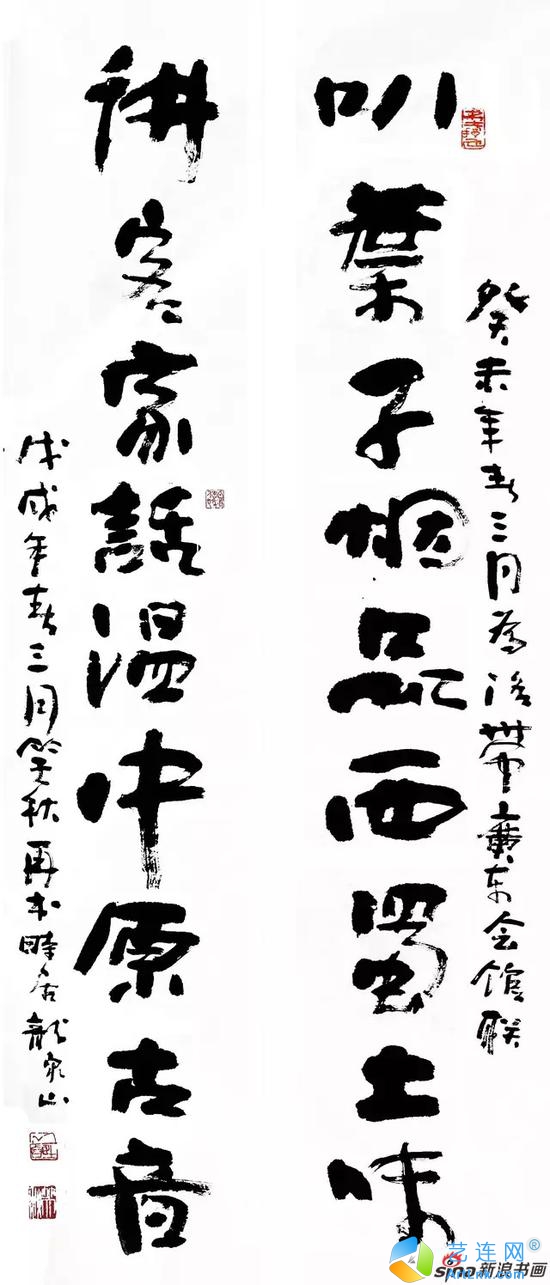 癸未年春三月為洛带廣东会馆联
叭葉子烟品西蜀土味
讲客家話温中原古音
戊戌年春三月笑秋再书時居龍泉山
艺连网®
sina新浪书画